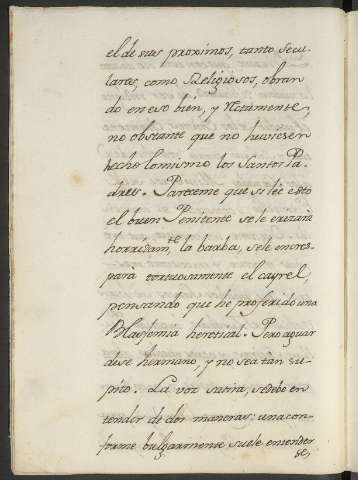 el de sus proximos, tanto Secu-
lares, como Religiosos, obran
do en eso bien, y rectamente,
no obstante que no huviesen
hecho lo mismo los Santos Pa-
dres. Pareceme que si lee esto
el buen Penitente se le erizarà
horridam.te la barba, se le encres-
parà tortuosamente el cayrel,
pensando que he proferido una
Blasfemia heretical. Pero aguar
dese hermano, y no sea tan su-
pito. La voz satira, se debe en
tender de dos maneras: una con-
forme bulgarmente suele entender
se,